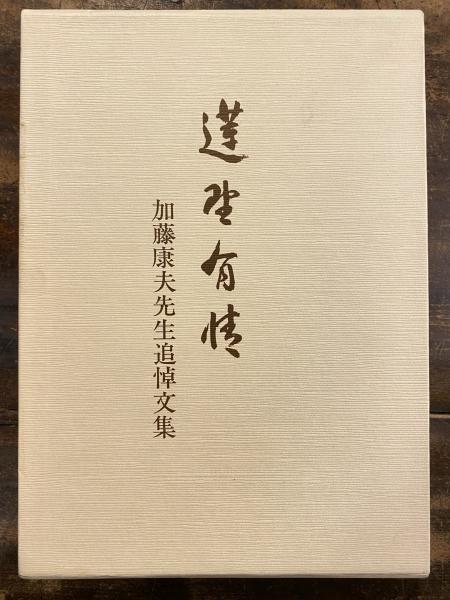 有情
加藤康夫先生追悼文集